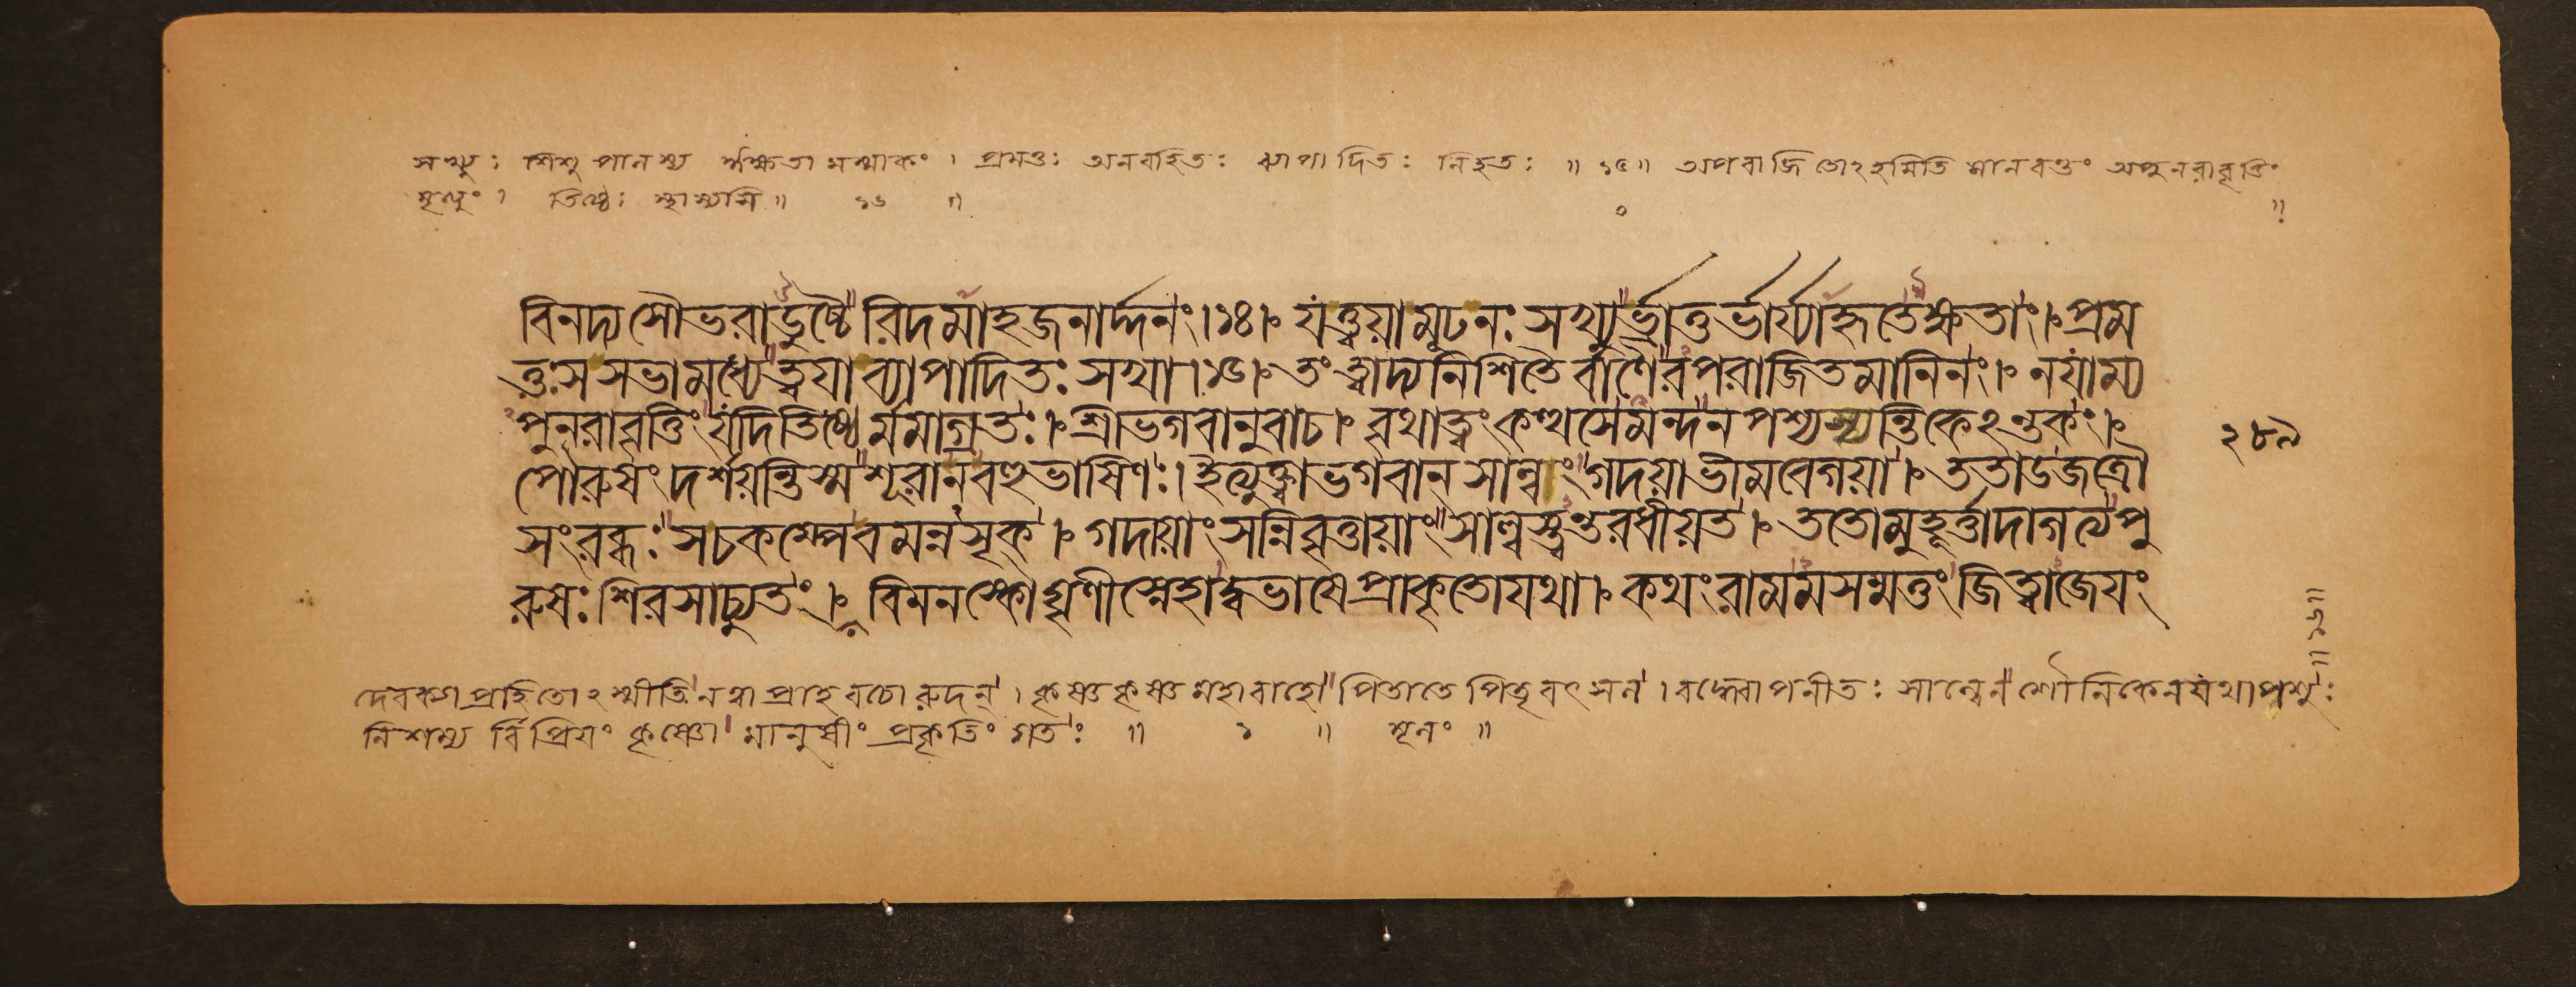 সখ্যুঃ শিশুপালস্য ঈক্ষতামস্মাকং । প্রমত্তঃ অনবহিতঃ ব্যাপাদিতঃ নিহতঃ ॥ ১৫॥ অপরাজিতোঽহমিতি মানবন্তং অপুনরাবৃত্তিং
মৃত্যুং । তিষ্ঠেঃ স্থাস্যসি ॥ ১৬ ॥
বিনদ্য সৌভরাডুচ্চৈরিদমাহজনার্দ্দনং ।১৪। যত্ত্বয়ামূঢনঃ সখ্যুর্ভ্রাতুর্ভার্য্যাহৃতেক্ষতাং । প্রম
ত্তঃ স সভামধ্যে ত্বযা ব্যাপাদিতঃ সখা ।১৫। তং ত্বাদ্য নিশিতৈর্বাণৈরপরাজিতমানিনং । নযাম্য
পুনরাবৃত্তিং যদি তিষ্ঠের্মমাগ্রতঃ । শ্রীভগবানুবাচ । বৃথাত্বং কত্থসে মন্দ ন পশ্যস্যন্তিকেঽন্তকং ।
পৌরুষং দর্শয়ন্তি স্ম শূরা ন বহুভাষিণঃ । ইত্যুক্ত্বা ভগবান সাল্বং গদয়া ভীমবেগয়া । ততাডজত্রৌ
সংরব্ধঃ স চকম্পে বমন্নসৃক্ । গদায়াং সন্নিবৃত্তায়াং সাল্বস্ত্বন্তরধীয়ত । ততো মুহূর্ত্তাদাগত্য পু
রুষঃ শিরসাচ্যুতং । বিমনস্কো ঘৃণী স্নেহাদ্বভাষে প্রাকৃতো যথা । কথং রামমসম্মত্তং জিত্বাজেযং
২৮৯
দেবক্যা প্রহিতোঽস্মীতি নত্বা প্রাহ বচো রুদন্ । কৃষ্ণ কৃষ্ণ মহাবাহো পিতা তে পিতৃবৎসল । বদ্ধ্বাপনীতঃ সাল্বেন শৌনিকেন যথা পশুঃ
নিশম্য বিপ্রিয়ং কৃষ্ণো মানুষীং প্রকৃতিং গতঃ ॥ ১ ॥ মূলং ॥